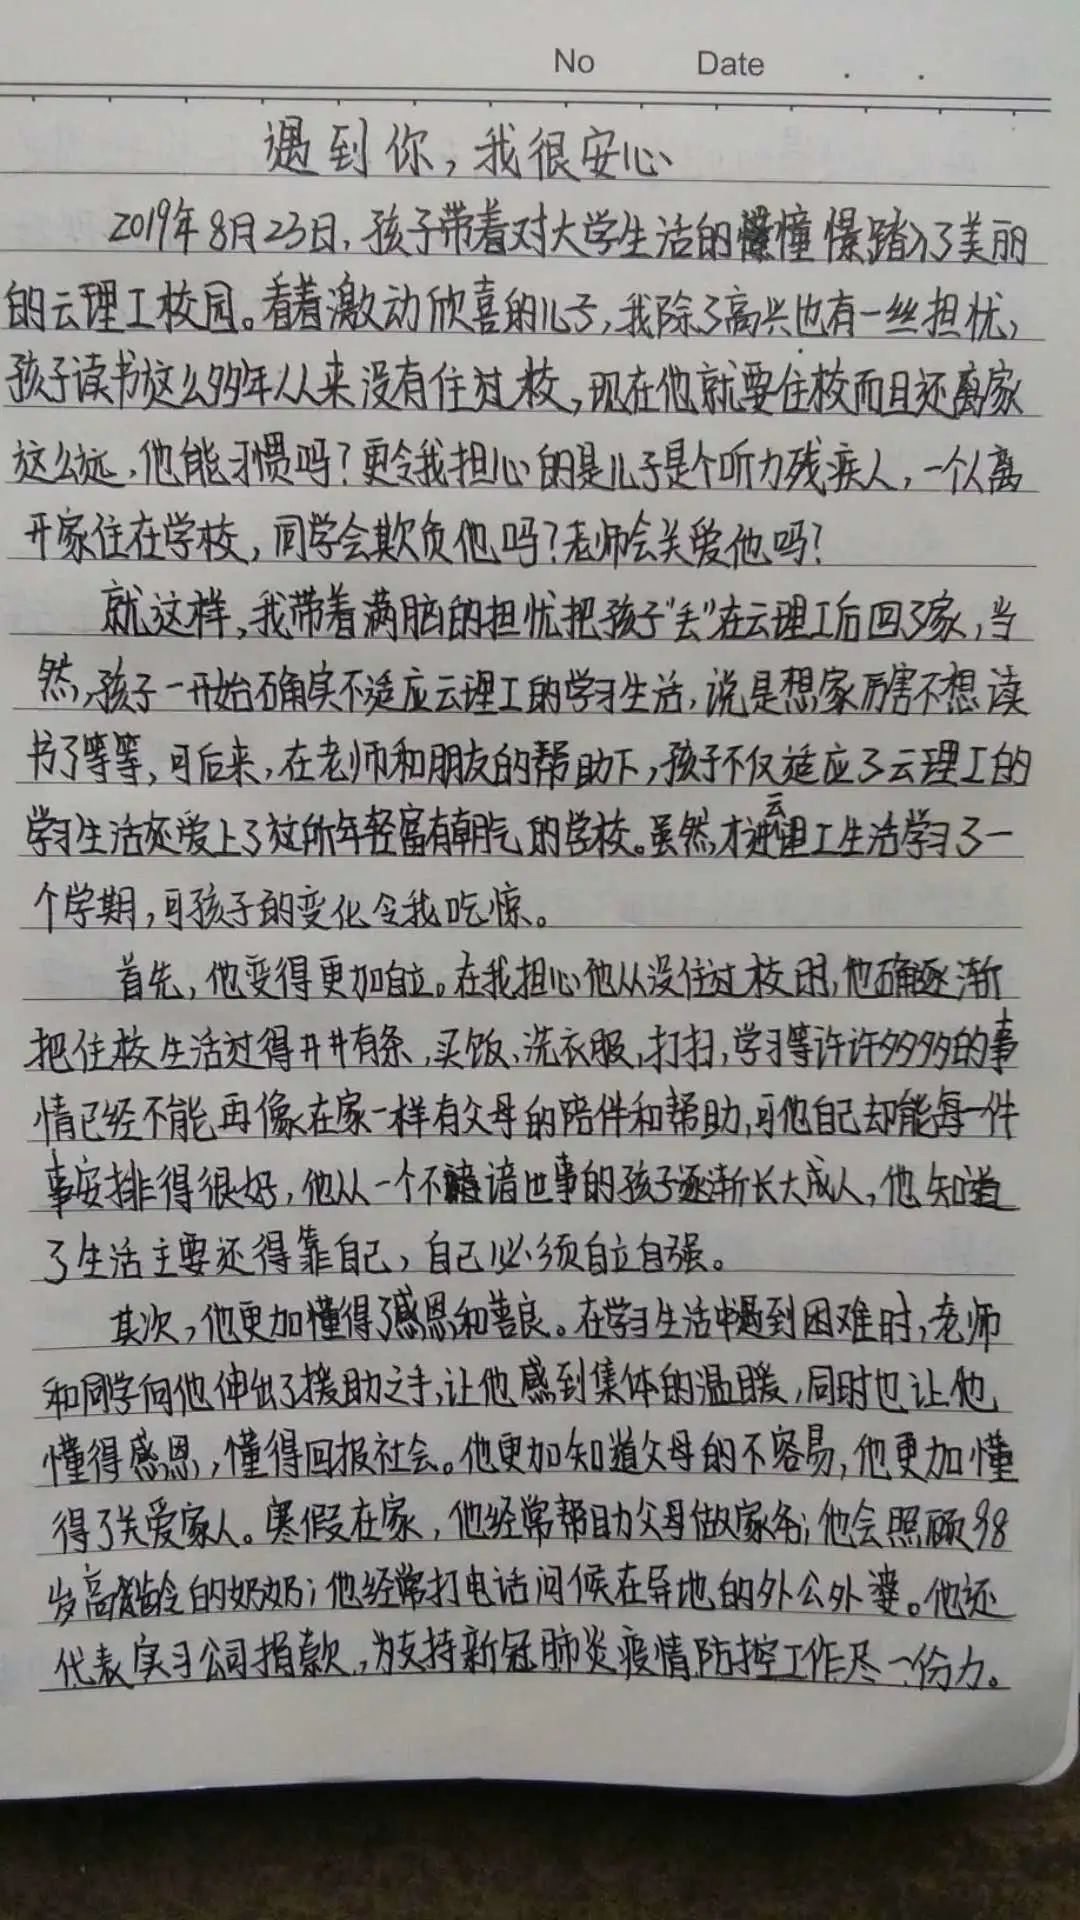 No Date . .
遇到你，我很安心
2019年8月23日，孩子带着对大学生活的憧憬踏入了美丽
的云理工校园。看着激动欣喜的儿子，我除了高兴也有一丝担忧，
孩子读书这么多年从来没有住过校，现在他就要住校而且还离家
这么远，他能习惯吗？更令我担心的是儿子是个听力残疾人，一个人离
开家住在学校，同学会欺负他吗？老师会关爱他吗？
就这样，我带着满脑的担忧把孩子“丢”在云理工后回了家，当
然，孩子一开始确实不适应云理工的学习生活，说是想家厉害不想读
书了等等，可后来，在老师和朋友的帮助下，孩子不仅适应了云理工的
学习生活还爱上了这所年轻富有朝气的学校。虽然，才进云理工生活学习了一
个学期，可孩子的变化令我吃惊。
首先，他变得更加自立。在我担心他从没住过校时，他确逐渐
把住校生活过得井井有条，买饭、洗衣服，打扫，学习等许许多多的事
情已经不能再像在家一样有父母的陪伴和帮助，可他自己却能每一件
事安排得很好，他从一个不谙世事的孩子逐渐长大成人，他知道
了生活主要还得靠自己，自己必须自立自强。
其次，他更加懂得了感恩和善良。在学习生活中遇到困难时，老师
和同学向他伸出了援助之手，让他感到集体的温暖，同时也让他
懂得感恩，懂得回报社会。他更加知道父母的不容易，他更加懂
得了关爱家人。寒假在家，他经常帮助父母做家务；他会照顾98
岁高龄的奶奶；他经常打电话问候在异地的外公外婆。他还
代表实习公司捐款，为支持新冠肺炎疫情防控工作尽一份力。